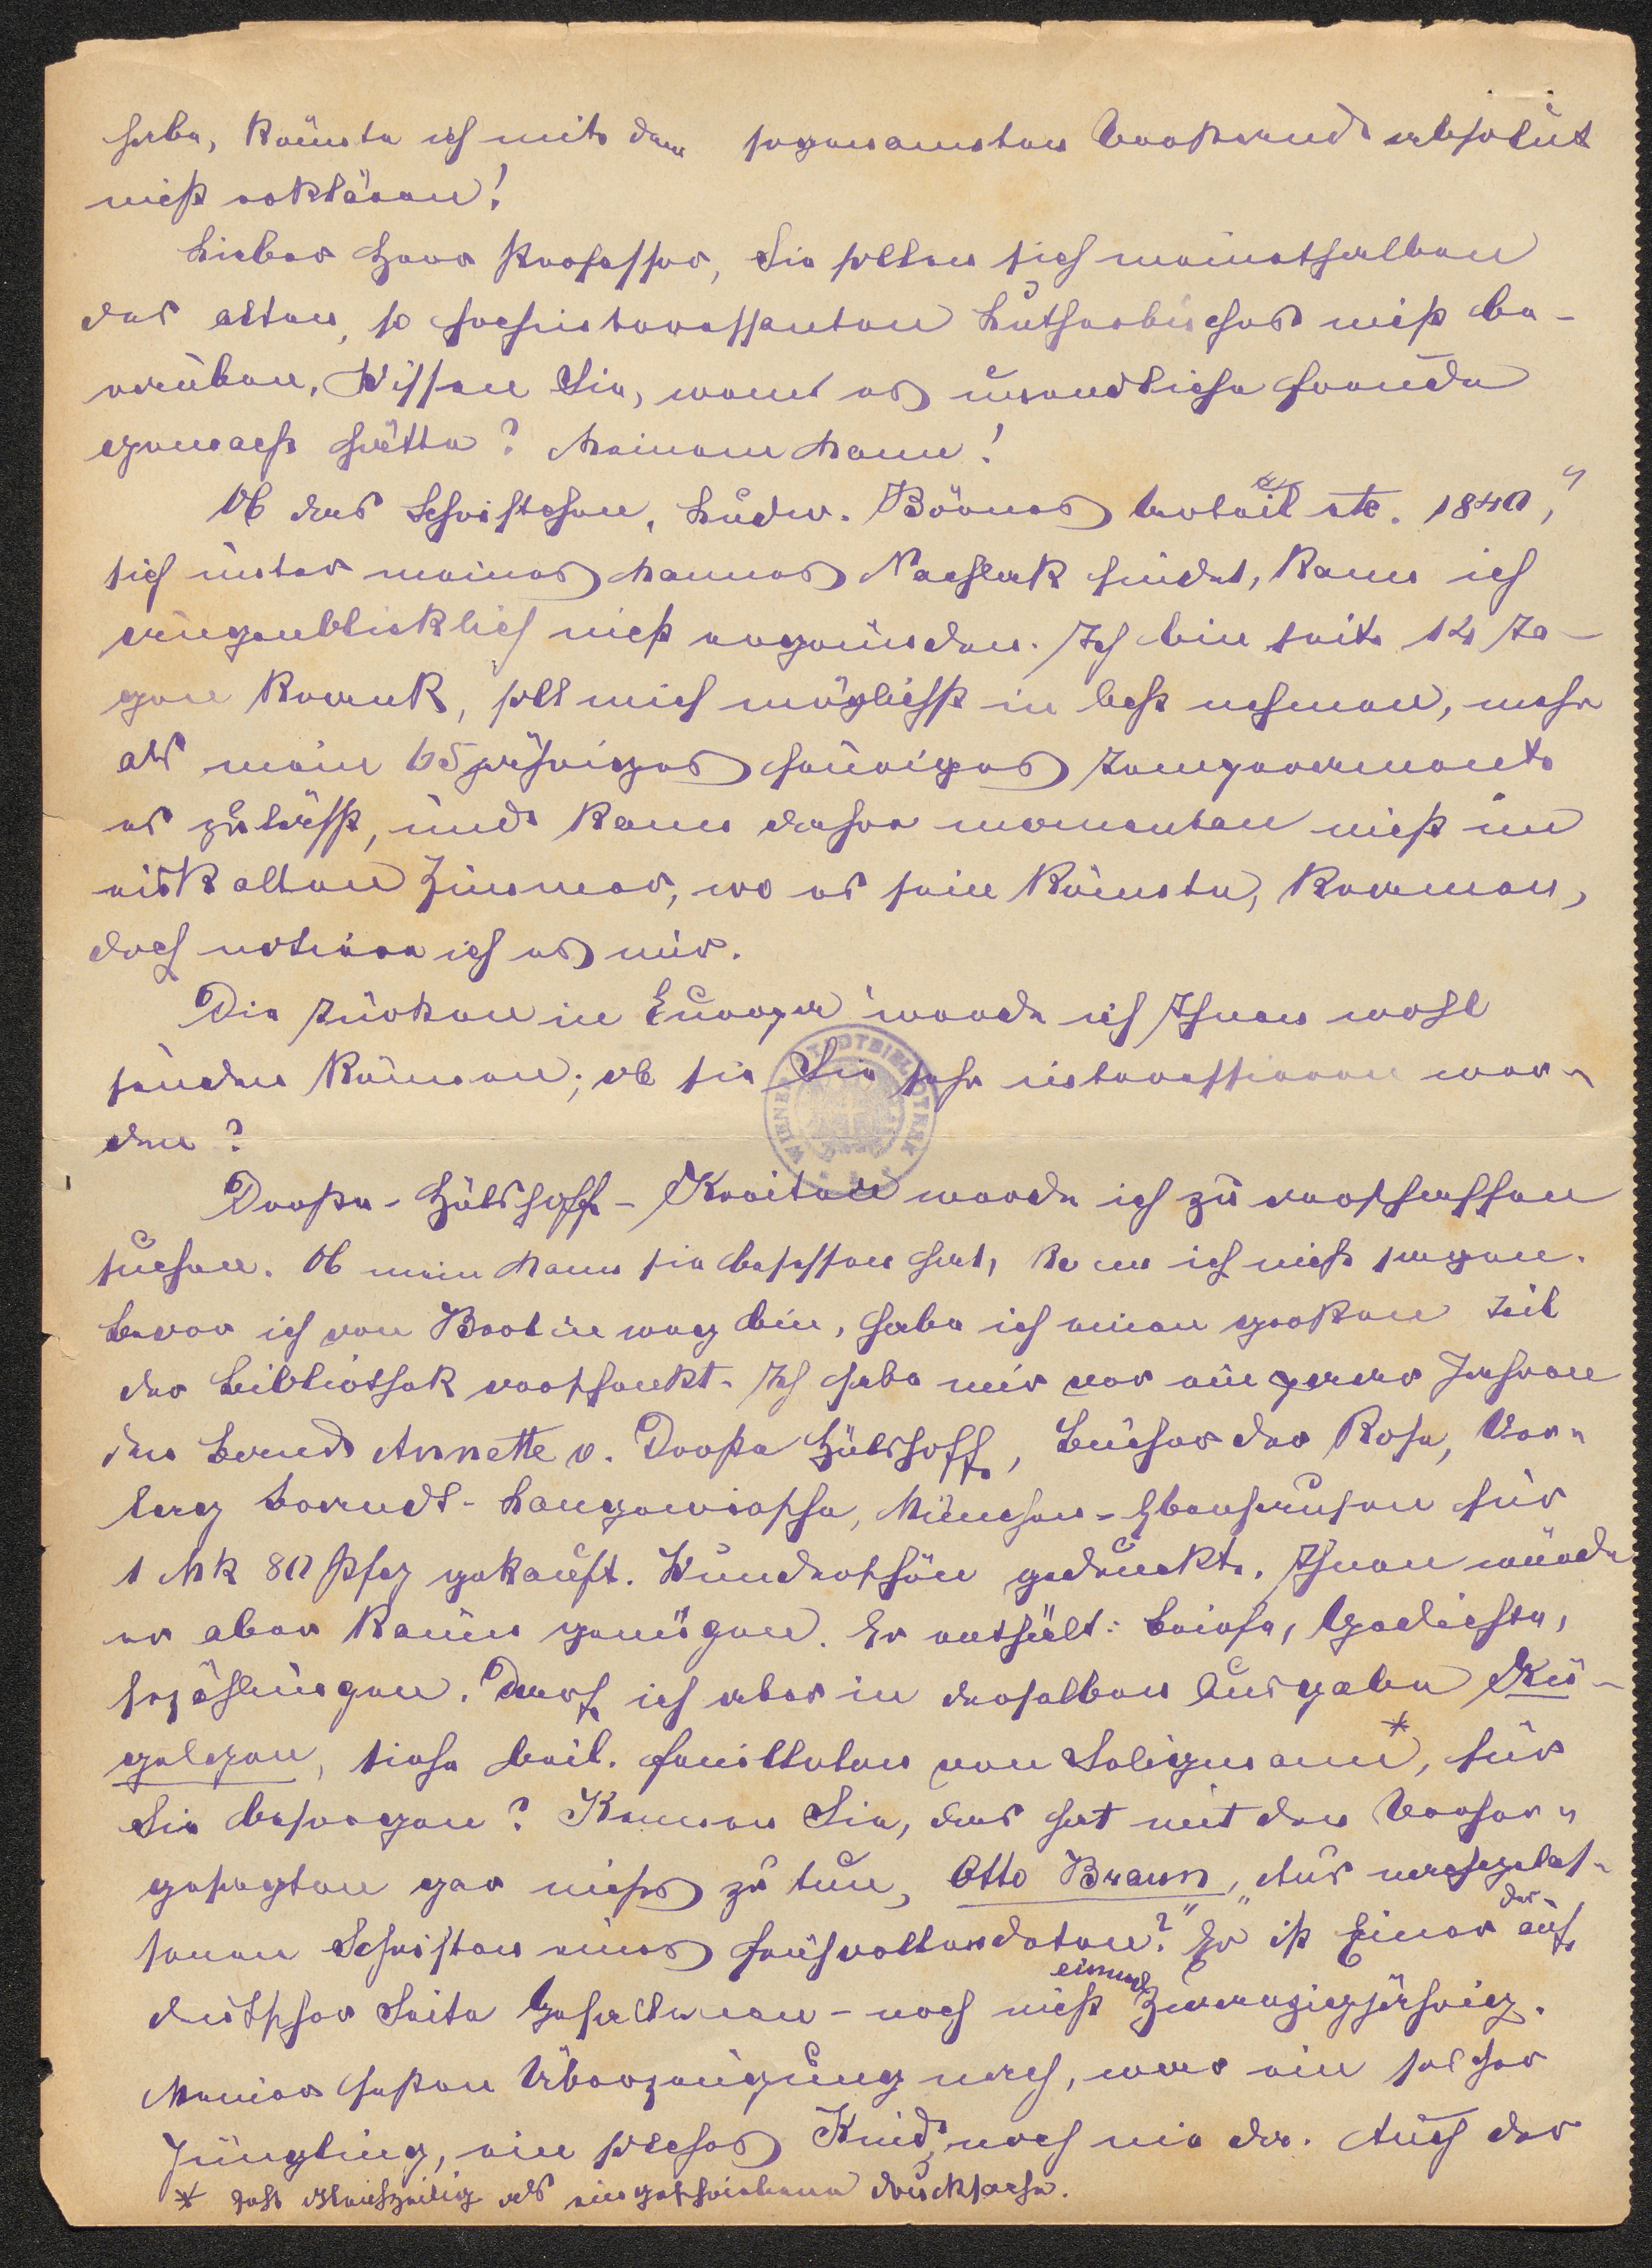 habe, könnte ich mit dem sogenannten Verstand absolut
nicht erklären!
Lieber Herr Professor, Sie sollen sich meinethalben
des alten, so hochinteressanten Lutherbuches nicht be-
rauben. Wissen Sie, wem es unendliche Freude
gemacht hätte? Meinem Mann!
Ob das Schriftchen „Ludw. Börnes Urteil etc. 1840,"
sich unter meines Mannes Nachlaß findet, kann ich
augenblicklich nicht ergründen. Ich bin seit 14 Ta-
gen krank, soll mich möglichst in acht nehmen, mehr
als mein 65jähriges feuriges Temperament
es zuläßt, und kann daher momentan nicht im
eiskalten Zimmer, wo es sein könnte, kramen,
doch notiere ich es mir.
Die Türken in Europa werde ich Ihnen wohl
senden können; ob sie Sie sehr interessieren wer-
den?
Droste-Hülshoff-Kreiten werde ich zu verschaffen
suchen. Ob mein Mann sie besessen hat, kann ich nicht sagen.
Bevor ich von Berlin weg bin, habe ich einen großen Teil
der Bibliothek verschenkt. Ich habe mir vor ein paar Jahren
den Band Annette v. Droste Hülshoff, Bücher der Rose, Ver-
lag Langewiesche, München-Ebenhausen für
1 Mk 80 Pfg gekauft. Wunderschön gedruckt. Ihnen würde
er aber kaum genügen. Er enthält: Briefe, Gedichte,
Erzählungen. Darf ich aber in derselben Ausgabe Kü-
gelgen, siehe beil. Feuilleton von Seligmann*, für
Sie besorgen? Kennen Sie, das hat mit dem Vorher-
gesagten gar nichts zu tun, Otto Braun, „Aus nachgelas-
senen Schriften eines Frühvollendeten?" Er ist Einer der auf
deutscher Seite Gefallenen - noch nicht einmal Zwanzigjährig.
Meiner festen Überzeugung nach, war ein solcher
Jüngling, ein solches Kind, noch nie da. Auch der
* geht gleichzeitig als eingeschriebene Drucksache.
WIENER STADTBIBLIOTHEK